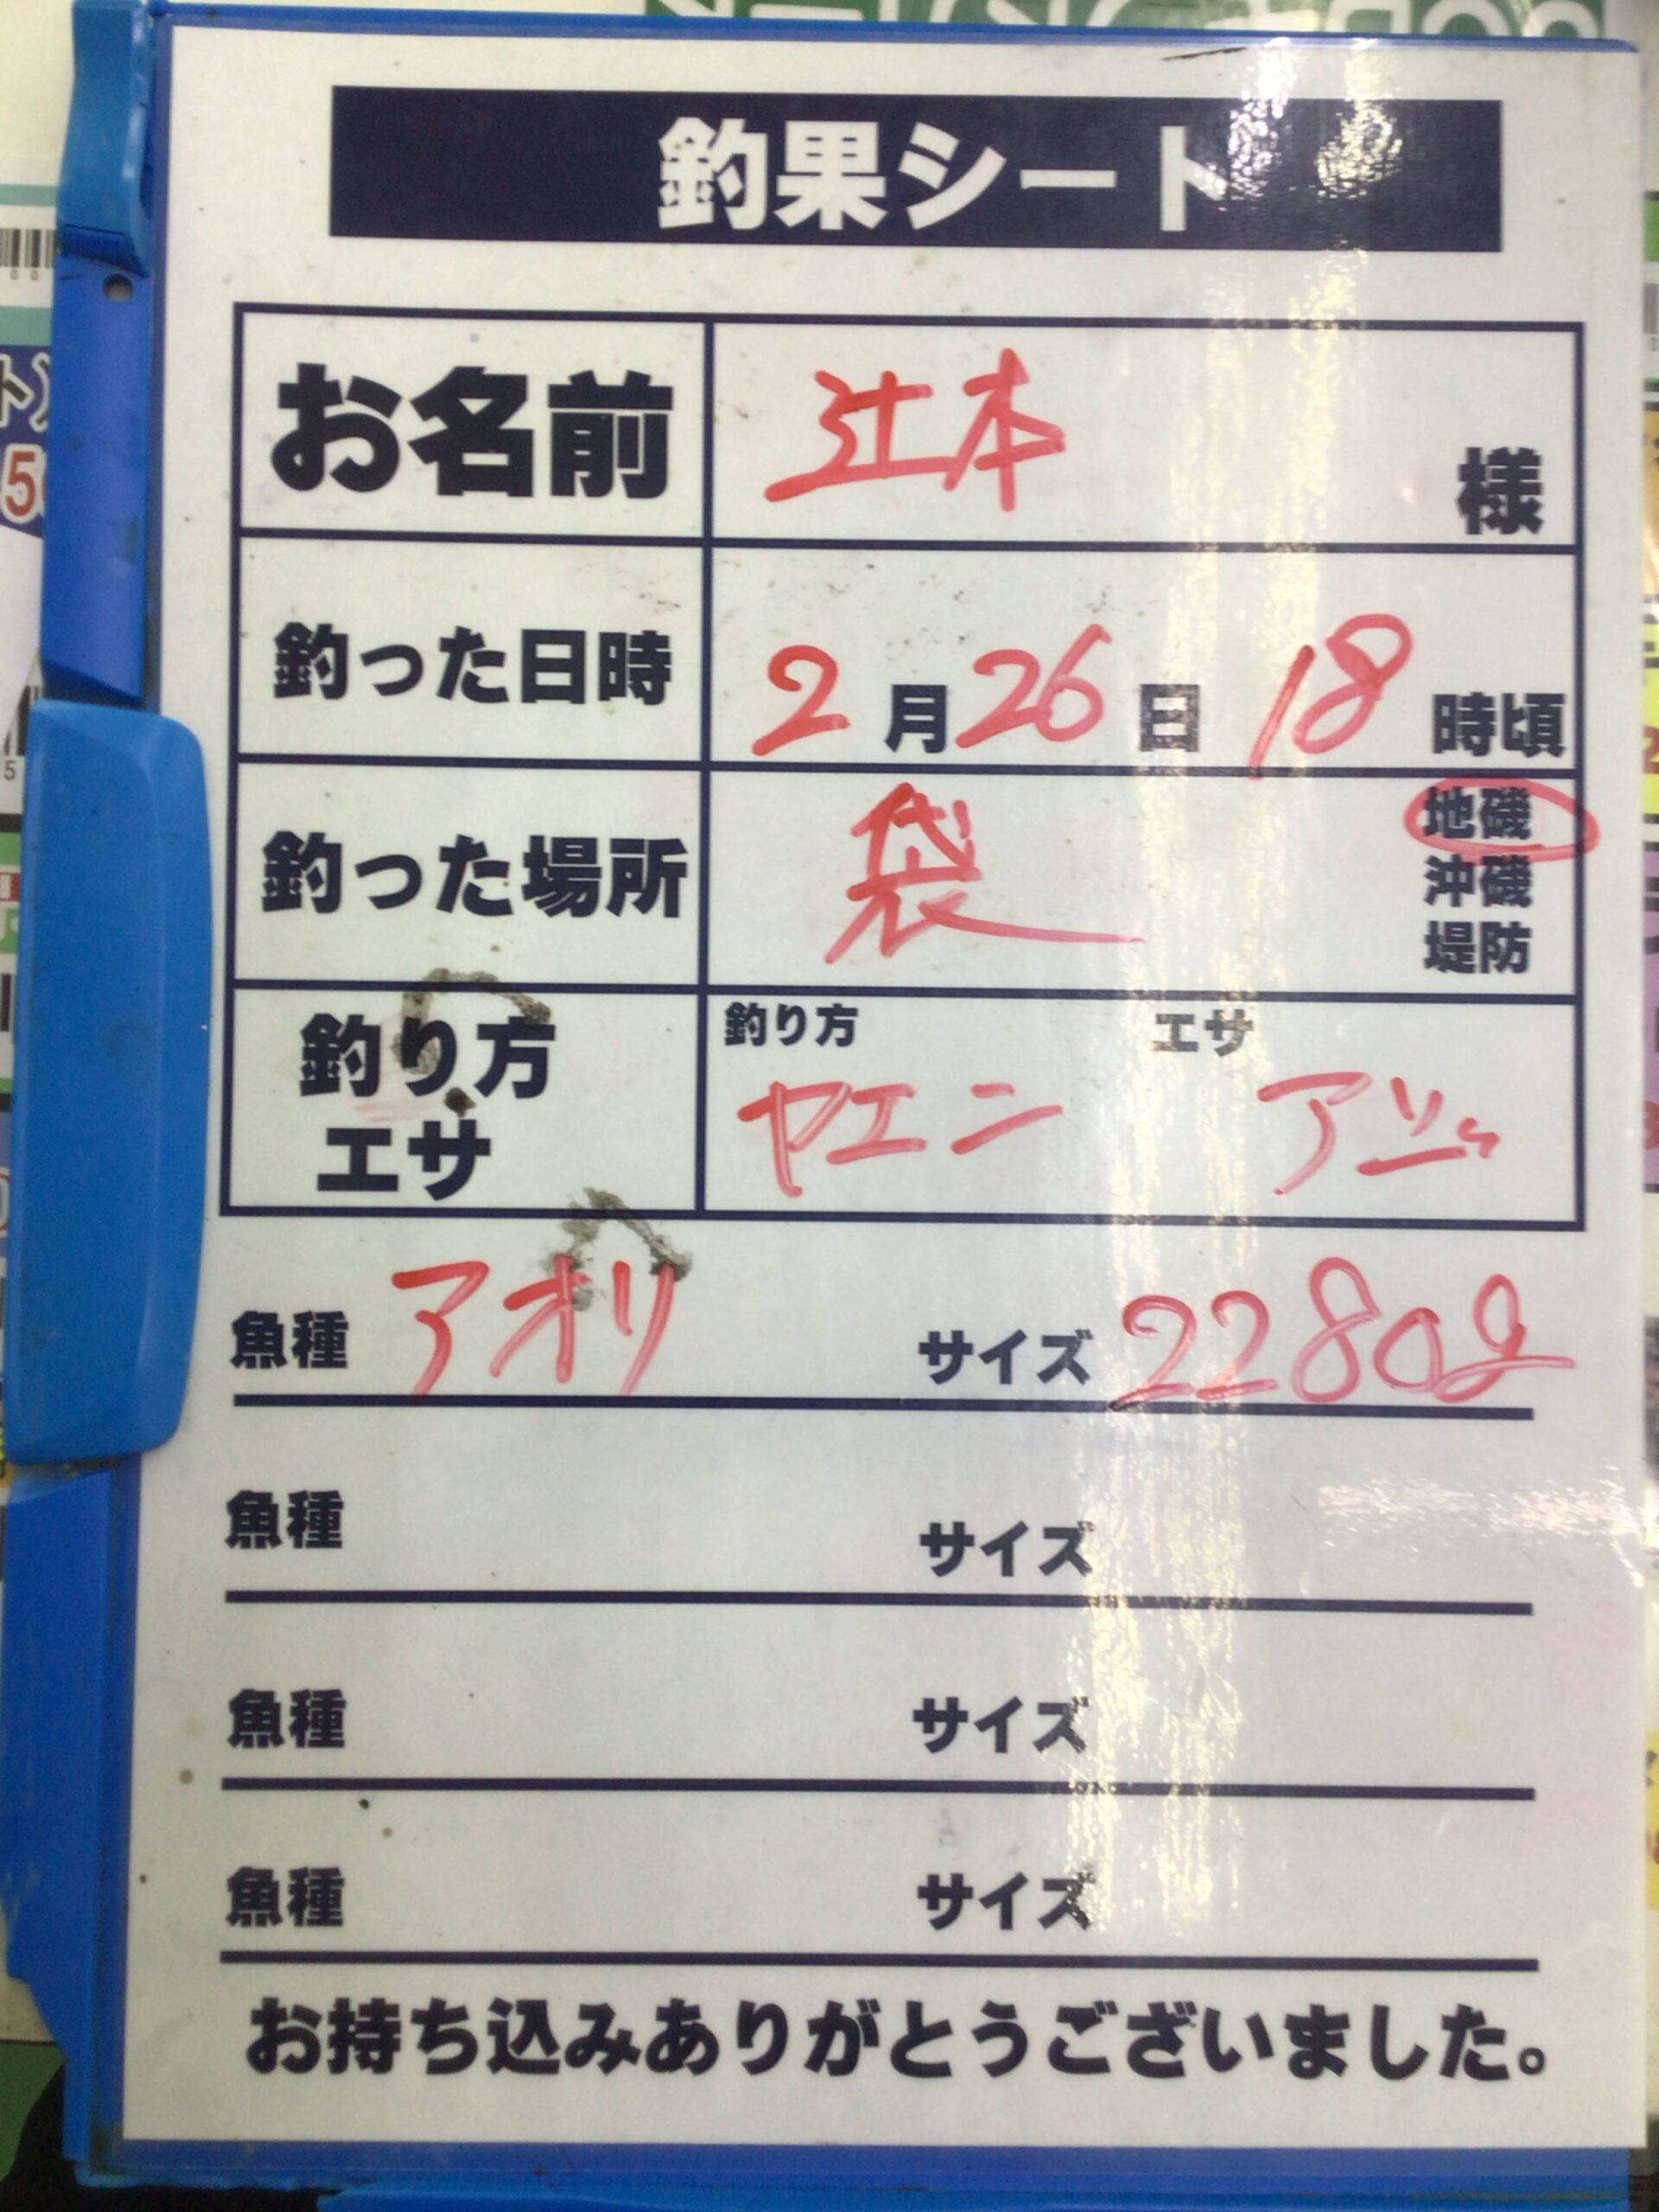 釣果シート
お名前 辻本 様
釣った日時 2月26日 18時頃
釣った場所 袋 地磯
沖磯
堤防
釣り方 エサ
釣り方 エサ ヤエン アジ
魚種 アオリ サイズ 2280g
魚種 サイズ
魚種 サイズ
魚種 サイズ
お持ち込みありがとうございました。